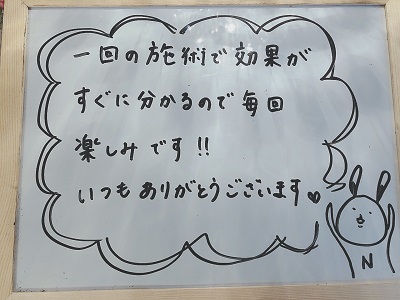 一回の施術で効果が
すぐに分かるので毎回
楽しみです!!
いつもありがとうございます♥
N